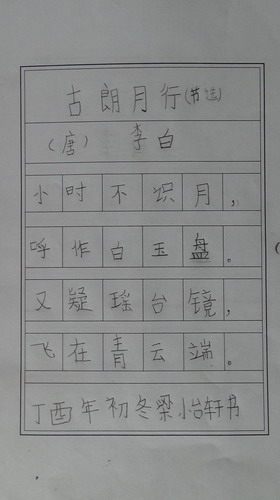 古朗月行(节选)
(唐) 李白
小时不识月,
呼作白玉盘。
又疑瑶台镜,
飞在青云端。
丁酉年初冬梁小怡轩书